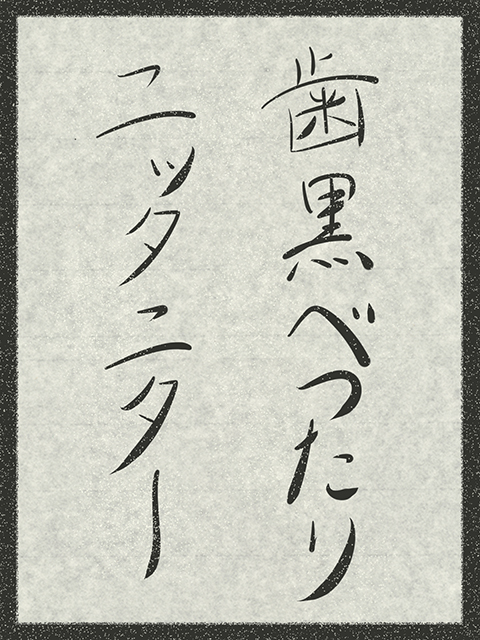 歯黒べったり
ニッタニター